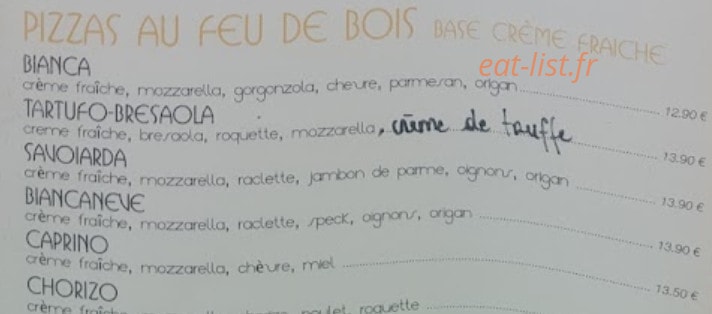 PIZZAS AU FEU DE BOIS BASE CRÈME FRAICHE
eat-list.fr
BIANCA
crème fraîche, mozzarella, gorgonzola, chèvre, parmesan, origan 12.90 €
TARTUFO-BRESAOLA
creme fraîche, bresaola, roquette, mozzarella, crème de truffe 13.90 €
SAVOIARDA
crème fraîche, mozzarella, raclette, jambon de parme, oignons, origan 13.90 €
BIANCANEVE
crème fraîche, mozzarella, raclette, speck, oignons, origan 13.90 €
CAPRINO
crème fraîche, mozzarella, chèvre, miel 13.50 €
CHORIZO
crème fraîche, poulet, roquette